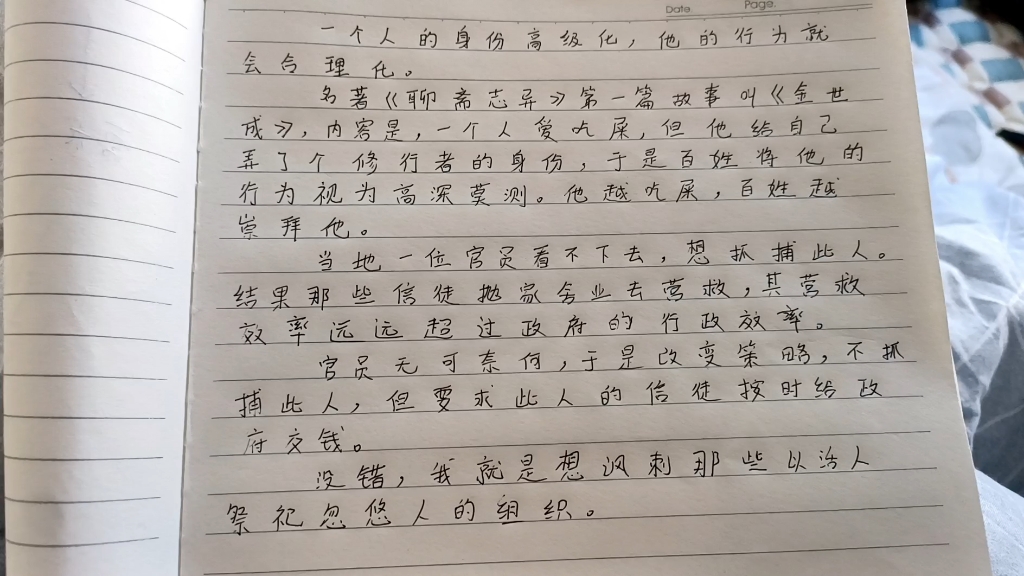 Date. Page.
一个人的身份高级化，他的行为就
会合理化。
名著《聊斋志异》第一篇故事叫《金世
成》，内容是，一个人爱吃屎，但他给自己
弄了个修行者的身份，于是百姓将他的
行为视为高深莫测。他越吃屎，百姓越
崇拜他。
当地一位官员看不下去，想抓捕此人。
结果那些信徒抛家务业去营救，其营救
效率远远超过政府的行政效率。
官员无可奈何，于是改变策略，不抓
捕此人，但要求此人的信徒按时给政
府交钱。
没错，我就是想讽刺那些以活人
祭祀忽悠人的组织。